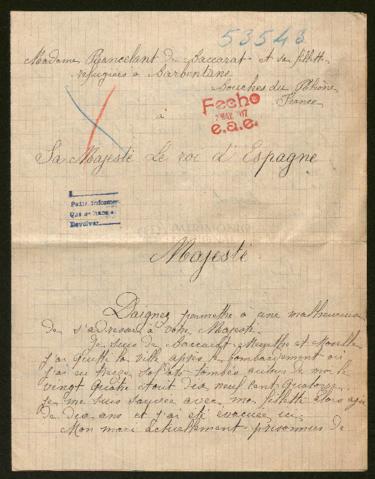 53548
Madame Pyancelant de Baccarat et sa fillette
réfugiées à Barbentane
Bouches du Rhône
France
Fecho
MAY 17
e.a.e.
à
Sa Majesté Le roi d'Espagne
Pedir informes
Devolver
Majesté
Daignez permettre à une malheureuse
de s'adresser à votre Majesté.
Je suis de Baccarat Meurthe et Moselle
j'ai quitté la ville après le bombardement où
j'ai vu treize soldats tombés autour de moi le
vingt quatre Août dix neuf cent quatorze
je me suis sauvée avec ma fillette alors agée
de dix ans et j'ai été évacuée ici.
Mon mari actuellement prisonnier de